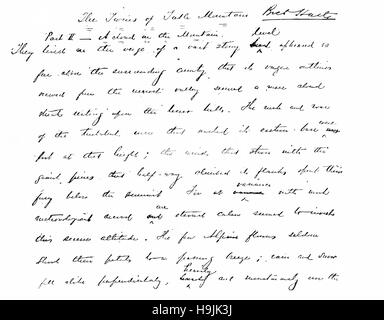 The Twins of Table Mountain Bret Harte
Part II — A cloud on the Mountain. level
They lived on the verge of a vast stony upheaved so
far above the surrounding country that its vague outlines
viewed from the nearest valley seemed a mere cloud
streak resting upon the lesser hills. The rush and roar
of the turbulent river that washed its eastern base were
lost at that height; the winds that strove with the
giant pines that half-way climbed its flanks spent their
fury before the summit variance
For at with most
meteorological record an eternal calm seemed to invest
this serene altitude. The few Alpine flowers seldom
their petals to a passing breeze; rain and snow
fell alike perpendicularly, heavily and monotonously over the
a
alamy
H9JK3J